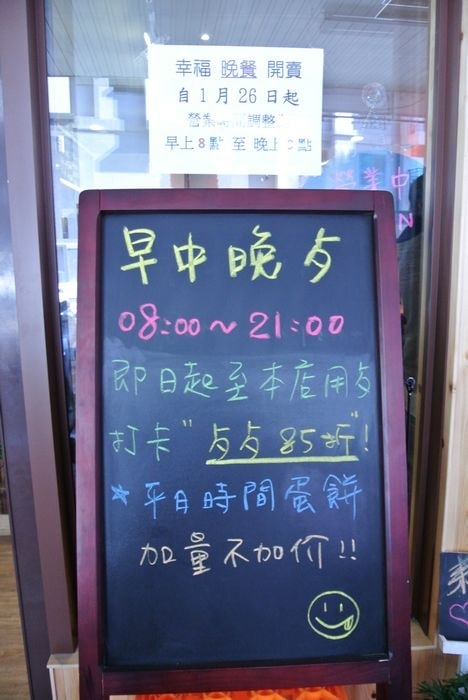 幸福 晚餐 開賣
自1月26日起
營業時間調整
早上8點 至 晚上9點
營業中
N
早中晚夕
08:00~21:00
即日起至本店用夕
打卡"夕夕85折"!
★平日時間蛋餅
加量不加价!!